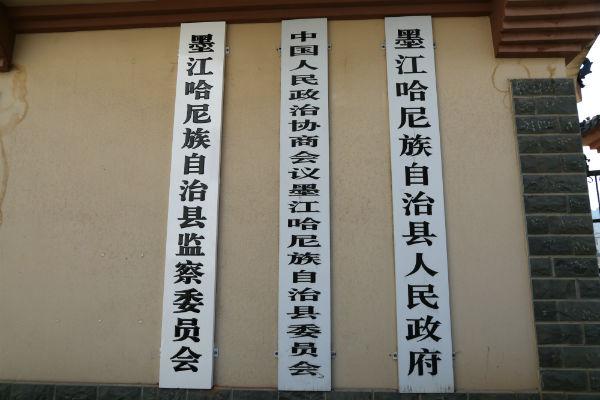 墨江哈尼族自治县监察委员会
中国人民政治协商会议墨江哈尼族自治县委员会
墨江哈尼族自治县人民政府